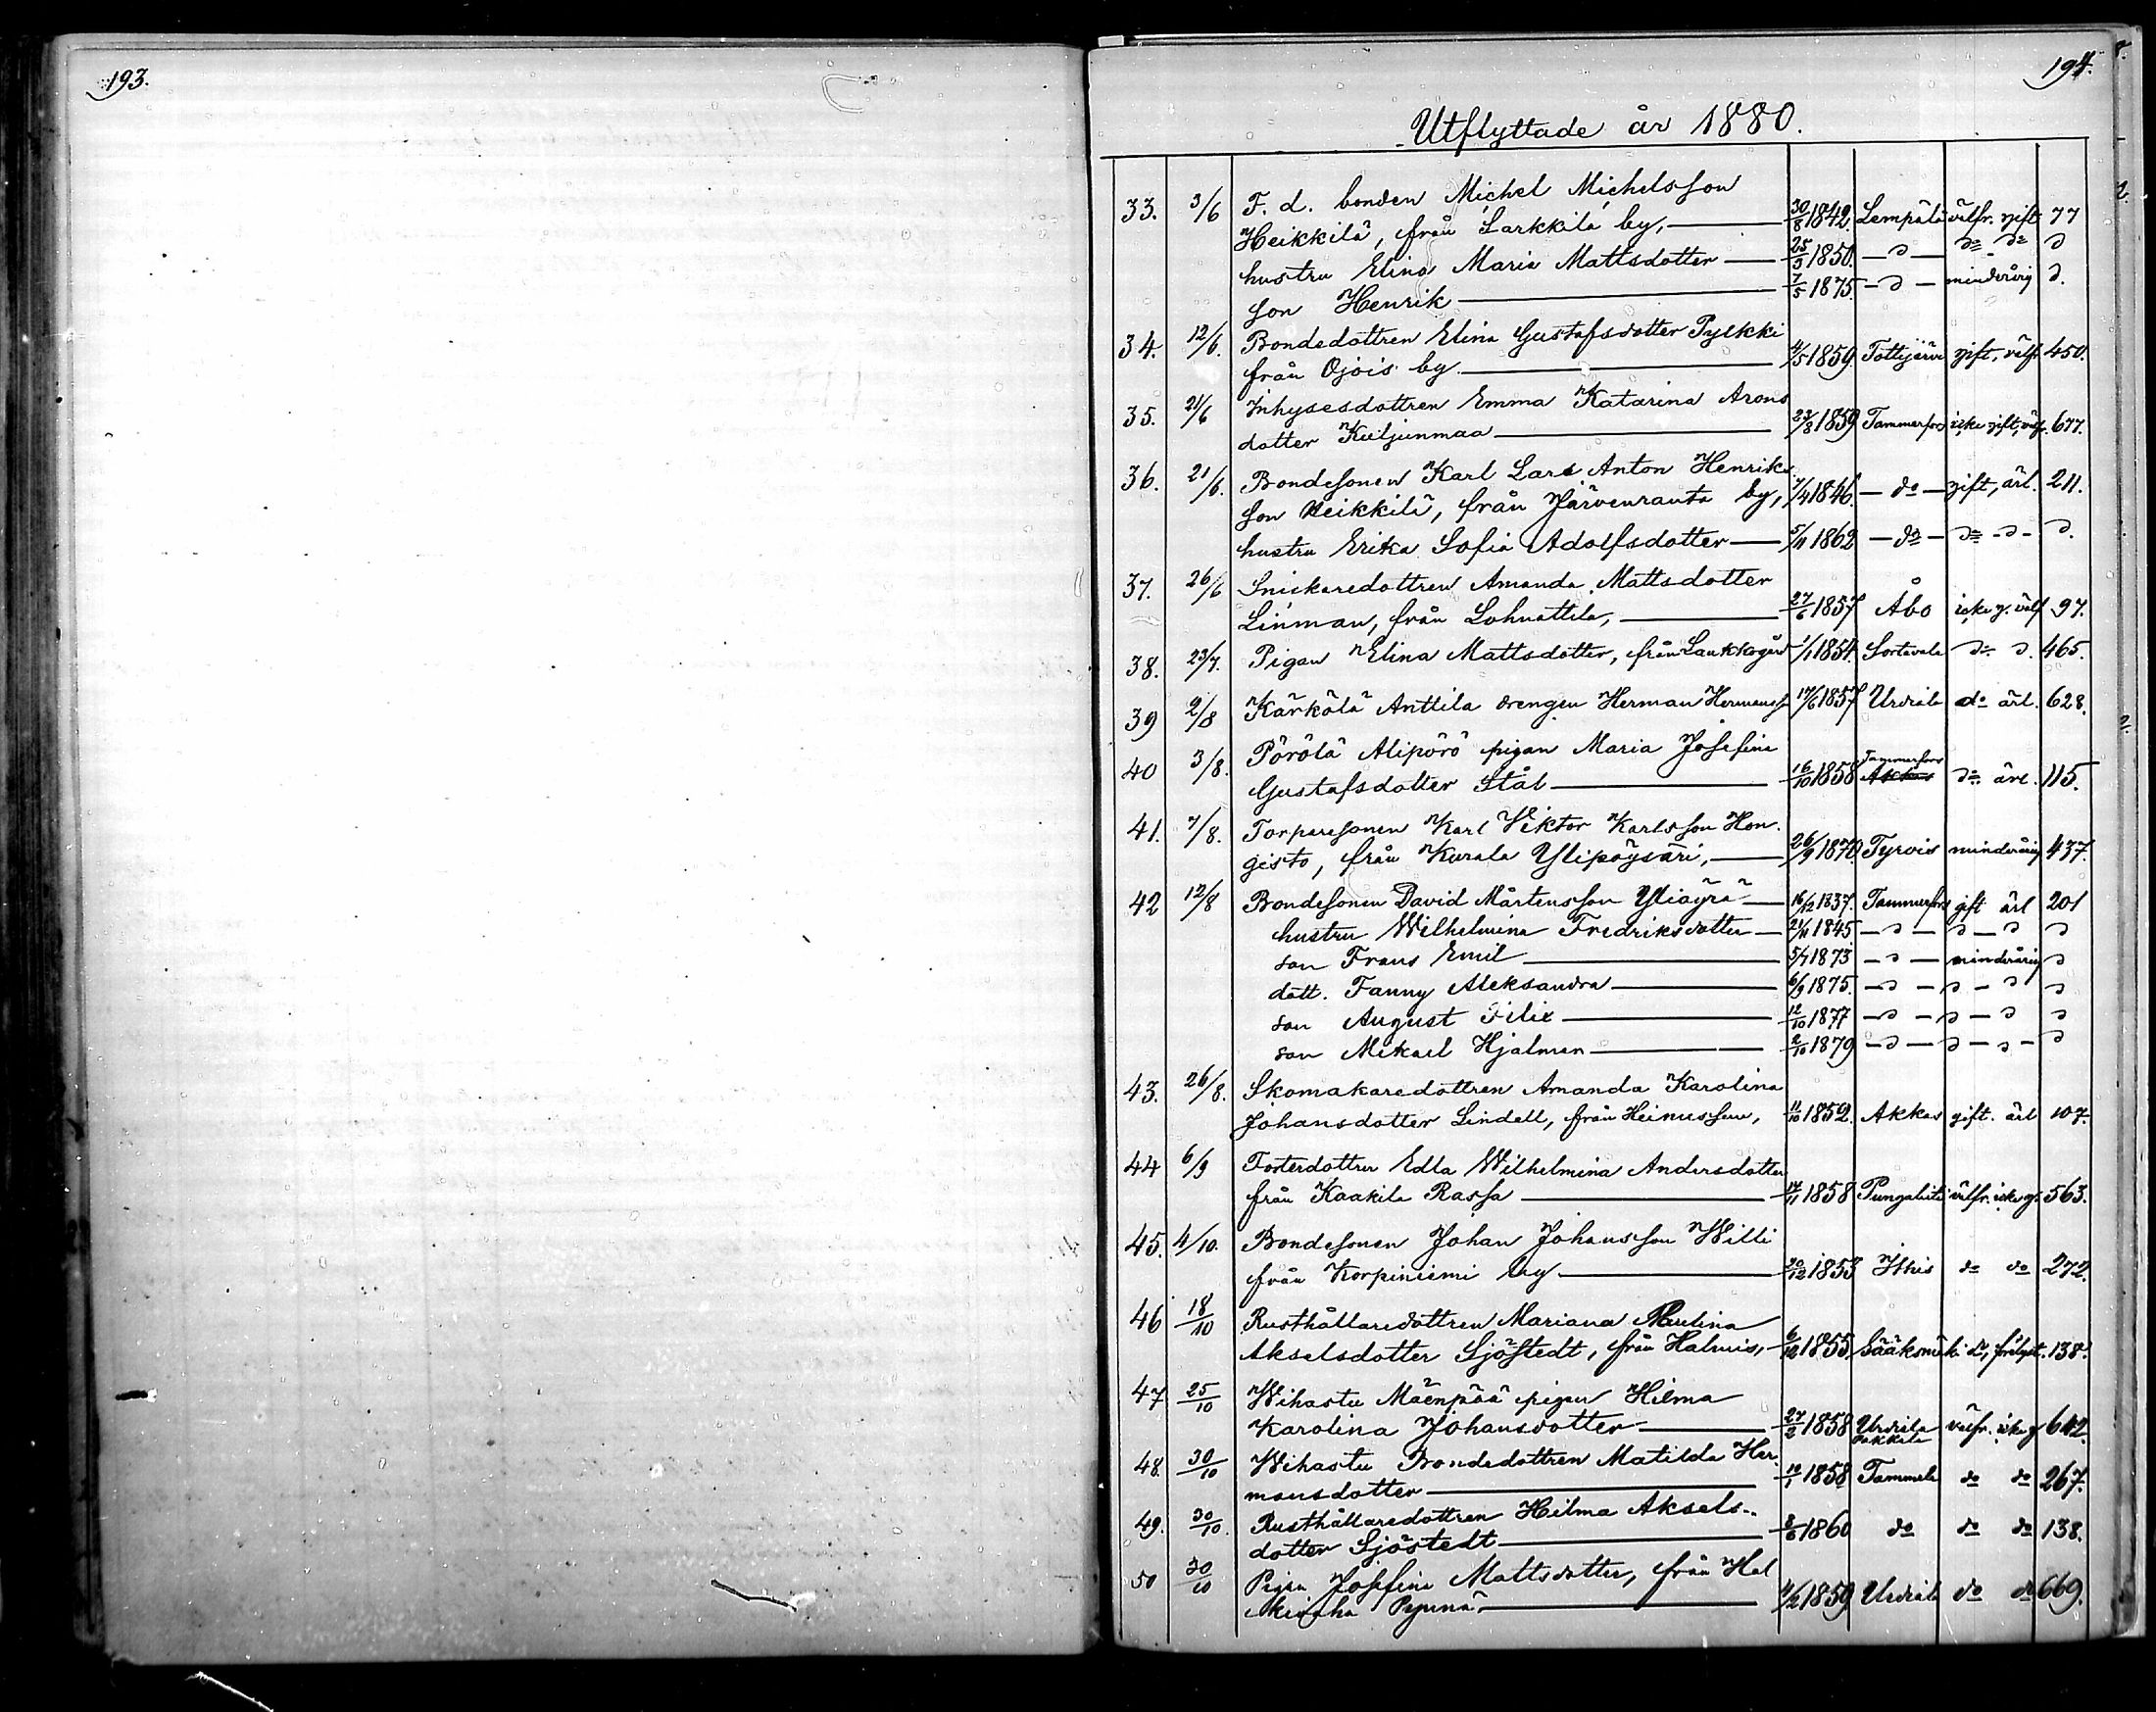 193.
194.
Utflyttade år 1880.
33. 3/6 F. d. bonden Michel Michelsson
Heikkilä, från Sarkkila by, 30/8 1842. Lempälä välfr. gift 77
hustru Elina Maria Mattsdotter 25/3 1850. — d — do do d
son Henrik 7/5 1875. — d — minderårig d.
34. 12/6. Bondedottren Elina Gustafsdotter Pylkki
från Ojois by 4/5 1859. Tottijärvi gift, välfr 450.
35. 21/6 Inhysesdottren Emma Katarina Arons
dotter Kuljunmaa 23/8 1859 Tammerfors icke gift, välf. 677.
36. 21/6. Bondesonen Karl Lars Anton Henriks
son Heikkilä, från Järvenranta by, 7/4 1846. — do — gift, ärl. 211.
hustru Erika Sofia Adolfsdotter 5/11 1862 — do — do - d - d.
37. 26/6 Snickaredottren Amanda Mattsdotter
Linman, från Lohnattila, 27/6 1857 Åbo icke g. välf 97.
38. 23/7. Pigan Elina Mattsdotter, från Laukkogård 1/1 1854. Sortavala do d. 465.
39 2/8 Kärkölä Anttila drengen Herman Hermanss 17/6 1857 Urdiala do ärl. 628.
40 3/8. Pörölä Alipörö pigan Maria Josefina
Tammerfors
Gustafsdotter Stål 16/10 1858 Akkas do ärl. 115.
41. 7/8. Torparesonen Karl Viktor Karlsson Hon-
gisto, från Kurala Ylipöysäri, 26/9 1870. Tyrvis minderårig 437.
42 12/8 Bondesonen David Mårtensson Yliäyrä 16/12 1837. Tammerfors gift ärl 201
hustru Wilhelmina Fredriksdotter 21/11 1845 — d — d — d d
son Frans Emil 5/7 1873 — d — minderårig d
dott. Fanny Aleksandra 6/9 1875. — d — d — d d
son August Filix 12/10 1877 — d — d — d d
son Mikael Hjalmar 2/10 1879 — d — d — d — d
43. 26/8. Skomakaredottren Amanda Karolina
Johansdotter Lindell, från Heinusuu, 11/10 1852. Akkas gift. ärl 107.
44 6/9 Fosterdottren Edla Wilhelmina Andersdotter
från Kaakila Rassa 14/11 1858 Pungalaitio välfr. icke g. 563.
45. 4/10. Bondesonen Johan Johansson Willi
från Korpiniemi by 20/12 1853 Ithis do do 272.
46 18/10 Rusthållaredottren Mariana Paulina
Akselsdotter Sjöstedt, från Halmis, 6/12 1855 Sääksmäki do, frälgst. 138.
47 25/10 Wihastu Mäenpää pigan Hilma
Karolina Johansdotter 27/2 1858 Urdiala välfr. icke g 642.
48. 30/10 Wihastu Bondedottren Matilda Her-
mansdotter 10/1 1858 Tammela do do 267.
49. 30/10. Rusthållaredottren Hilma Aksels-
dotter Sjöstedt 8/6 1860 do do do 138.
50 30/10 Pigan Josefina Mattsdotter, från Hal
kivaha Pynnä 4/2 1859 Urdiala do do 669.